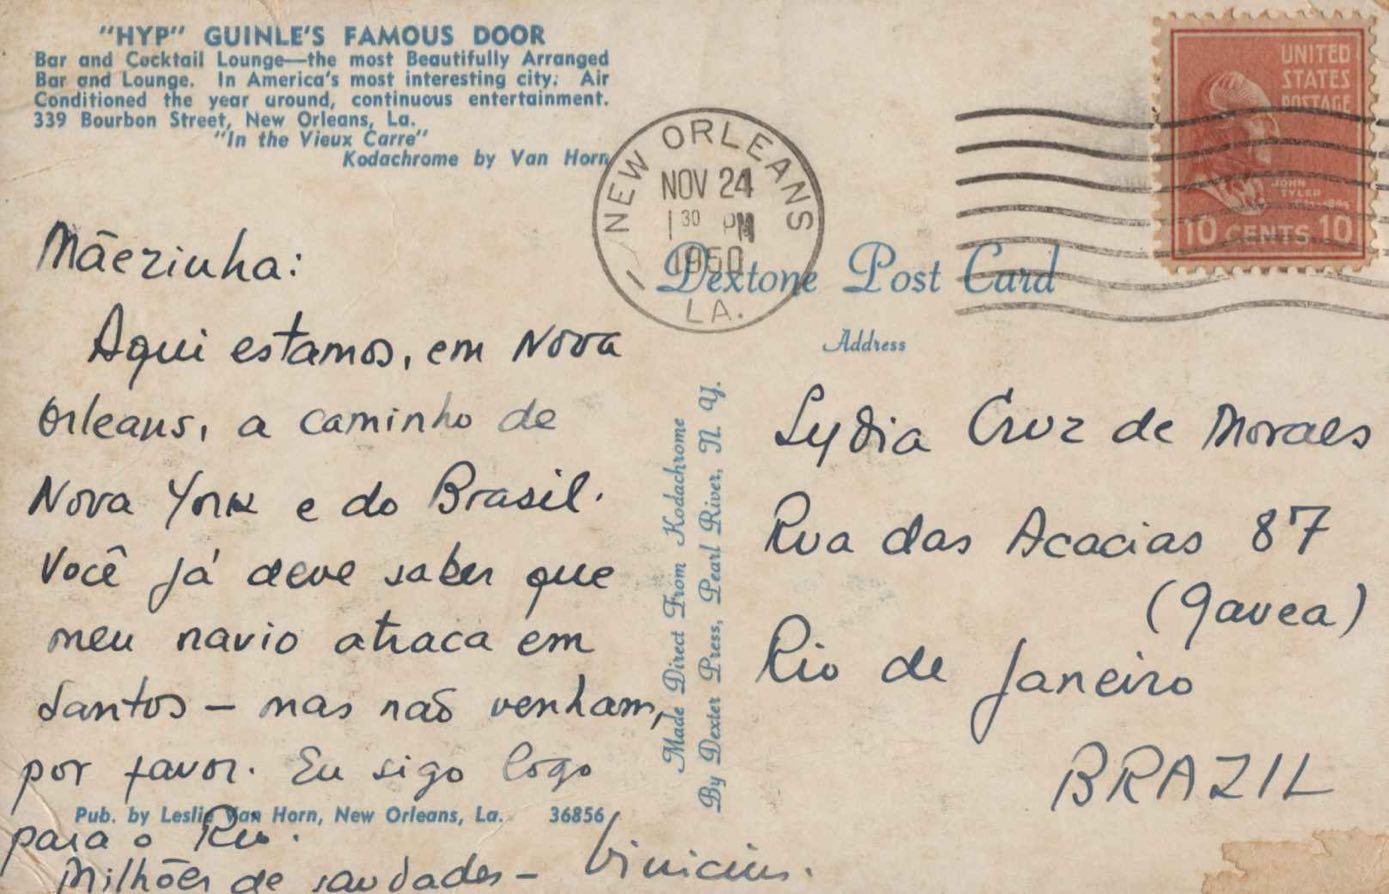 "HYP" GUINLE'S FAMOUS DOOR
Bar and Cocktail Lounge—the most Beautifully Arranged
Bar and Lounge. In America's most interesting city. Air
Conditioned the year around, continuous entertainment.
339 Bourbon Street, New Orleans, La.
"In the Vieux Carre"
Kodachrome by Van Horn
NEW ORLEANS
NOV 24
1 30 PM
1950
LA.
UNITED
STATES
POSTAGE
JOHN
TYLER
10 CENTS 10
Dextone Post Card
Address
Mãezinha:
Aqui estamos, em Nova
Orleans, a caminho de
Nova York e do Brasil.
Você já deve saber que
meu navio atraca em
Santos — mas não venham,
por favor. Eu sigo logo
para o Rio.
Milhões de saudades — Vinicius.
Pub. by Leslie Van Horn, New Orleans, La. 36856
Made Direct From Kodachrome
By Dexter Press, Pearl River, N. Y.
Lydia Cruz de Moraes
Rua das Acacias 87
(Gavea)
Rio de Janeiro
BRAZIL